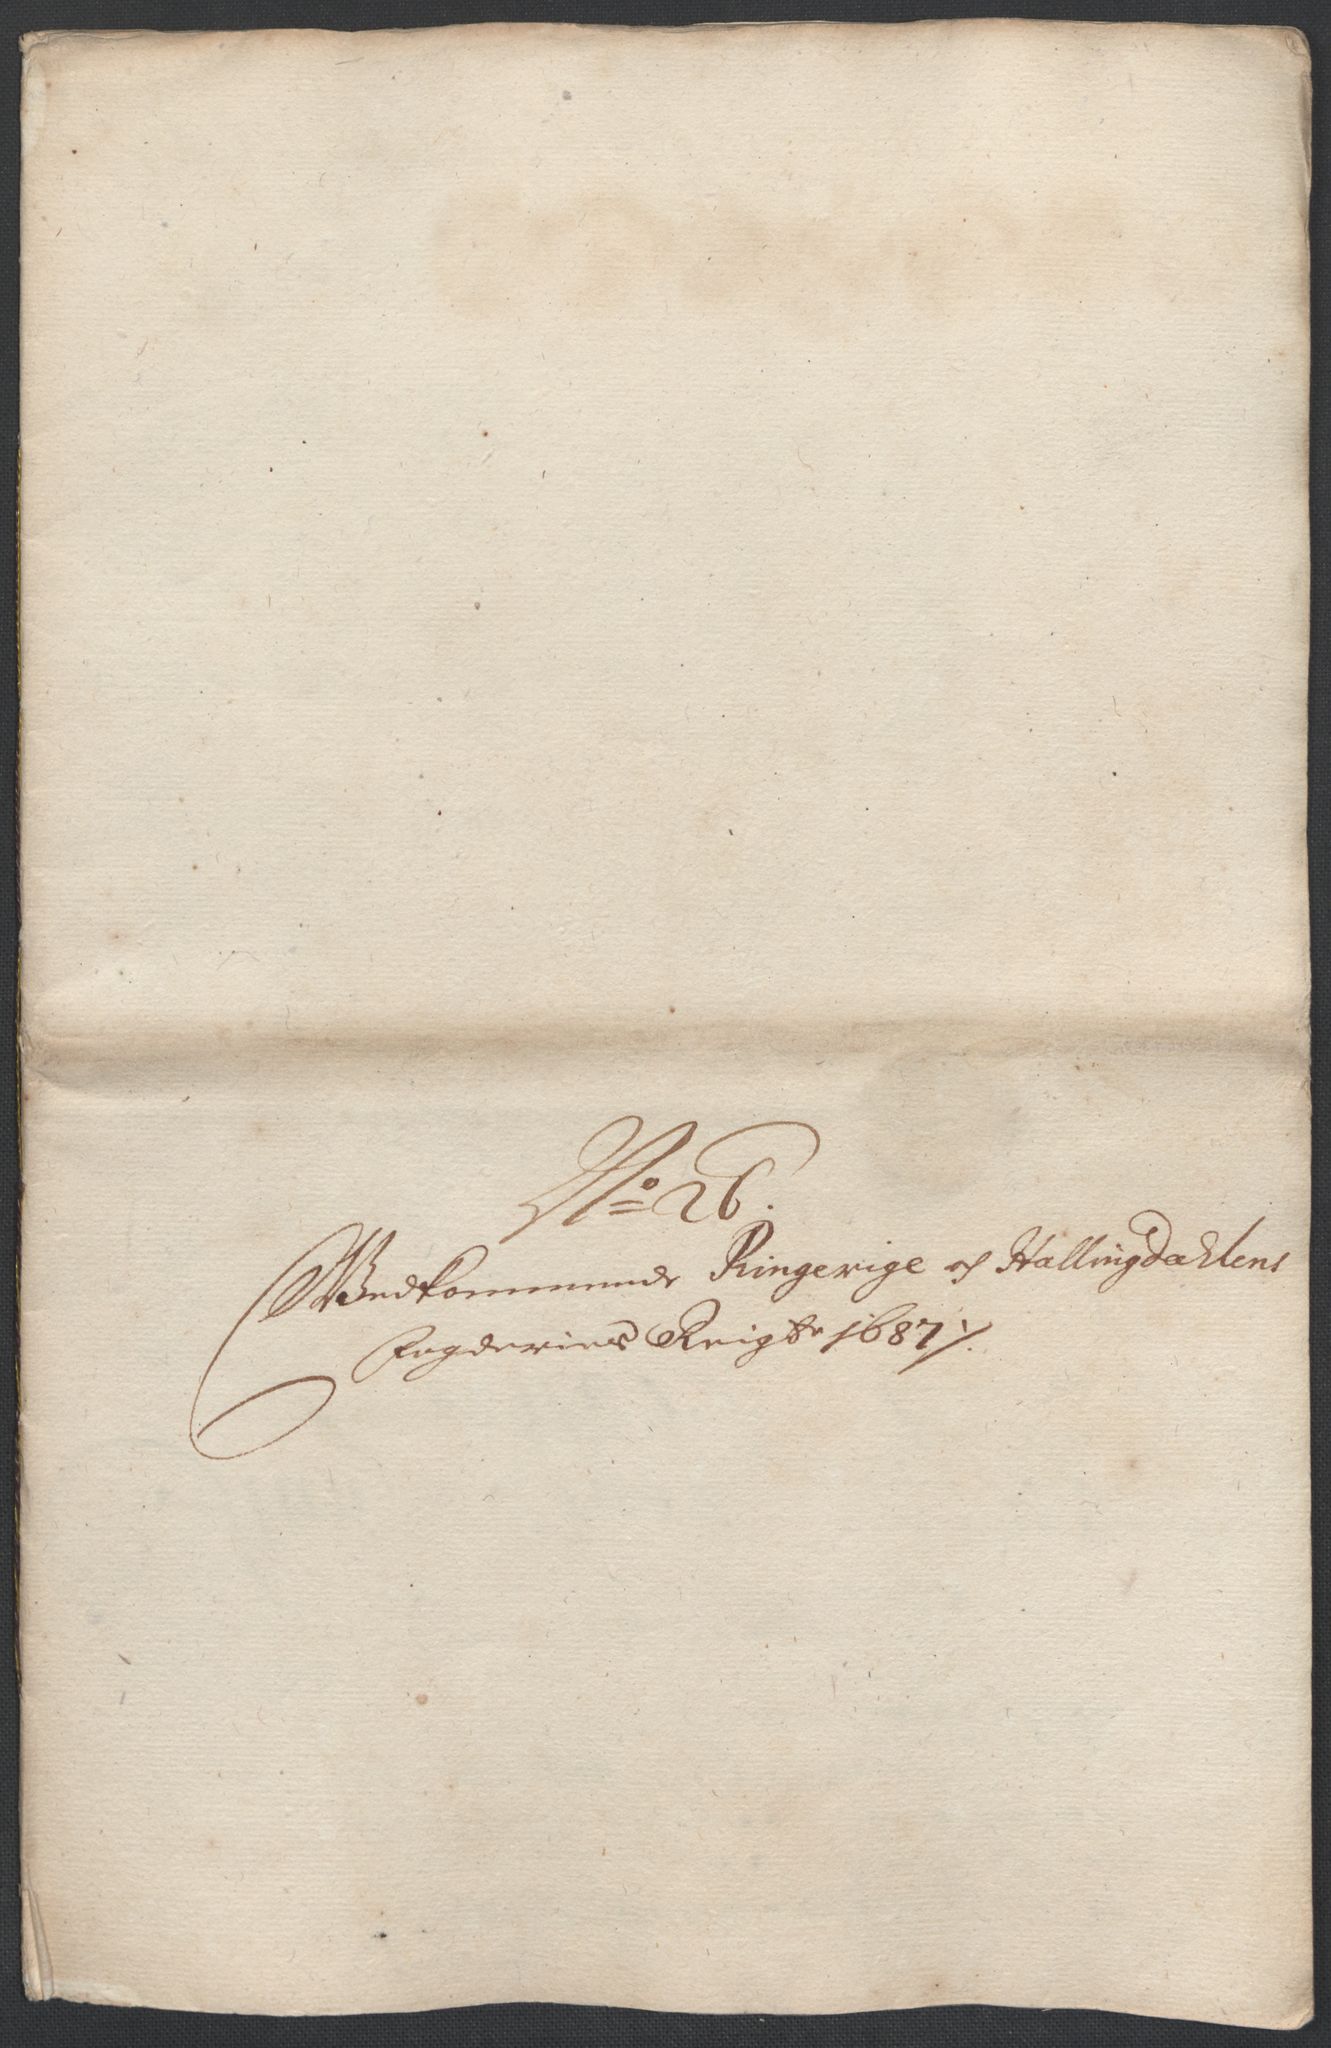 No 26.
Wedkommende Ringerige och Hallingdahlens
Fogderies Reigde 1687 /.